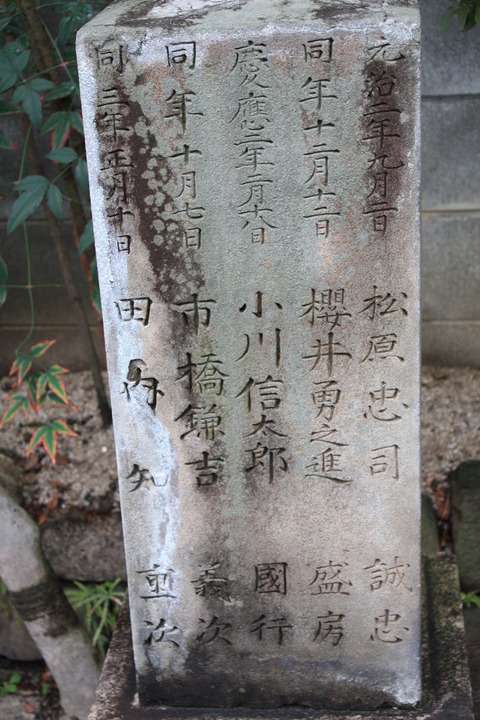 元治二年九月一日 松原忠司 誠忠
同年十二月十二日 櫻井勇之進 盛房
慶應二年二月十八日 小川信太郎 國行
同年十月七日 市橋鎌吉 義次
同三年正月十日 田内知 重次